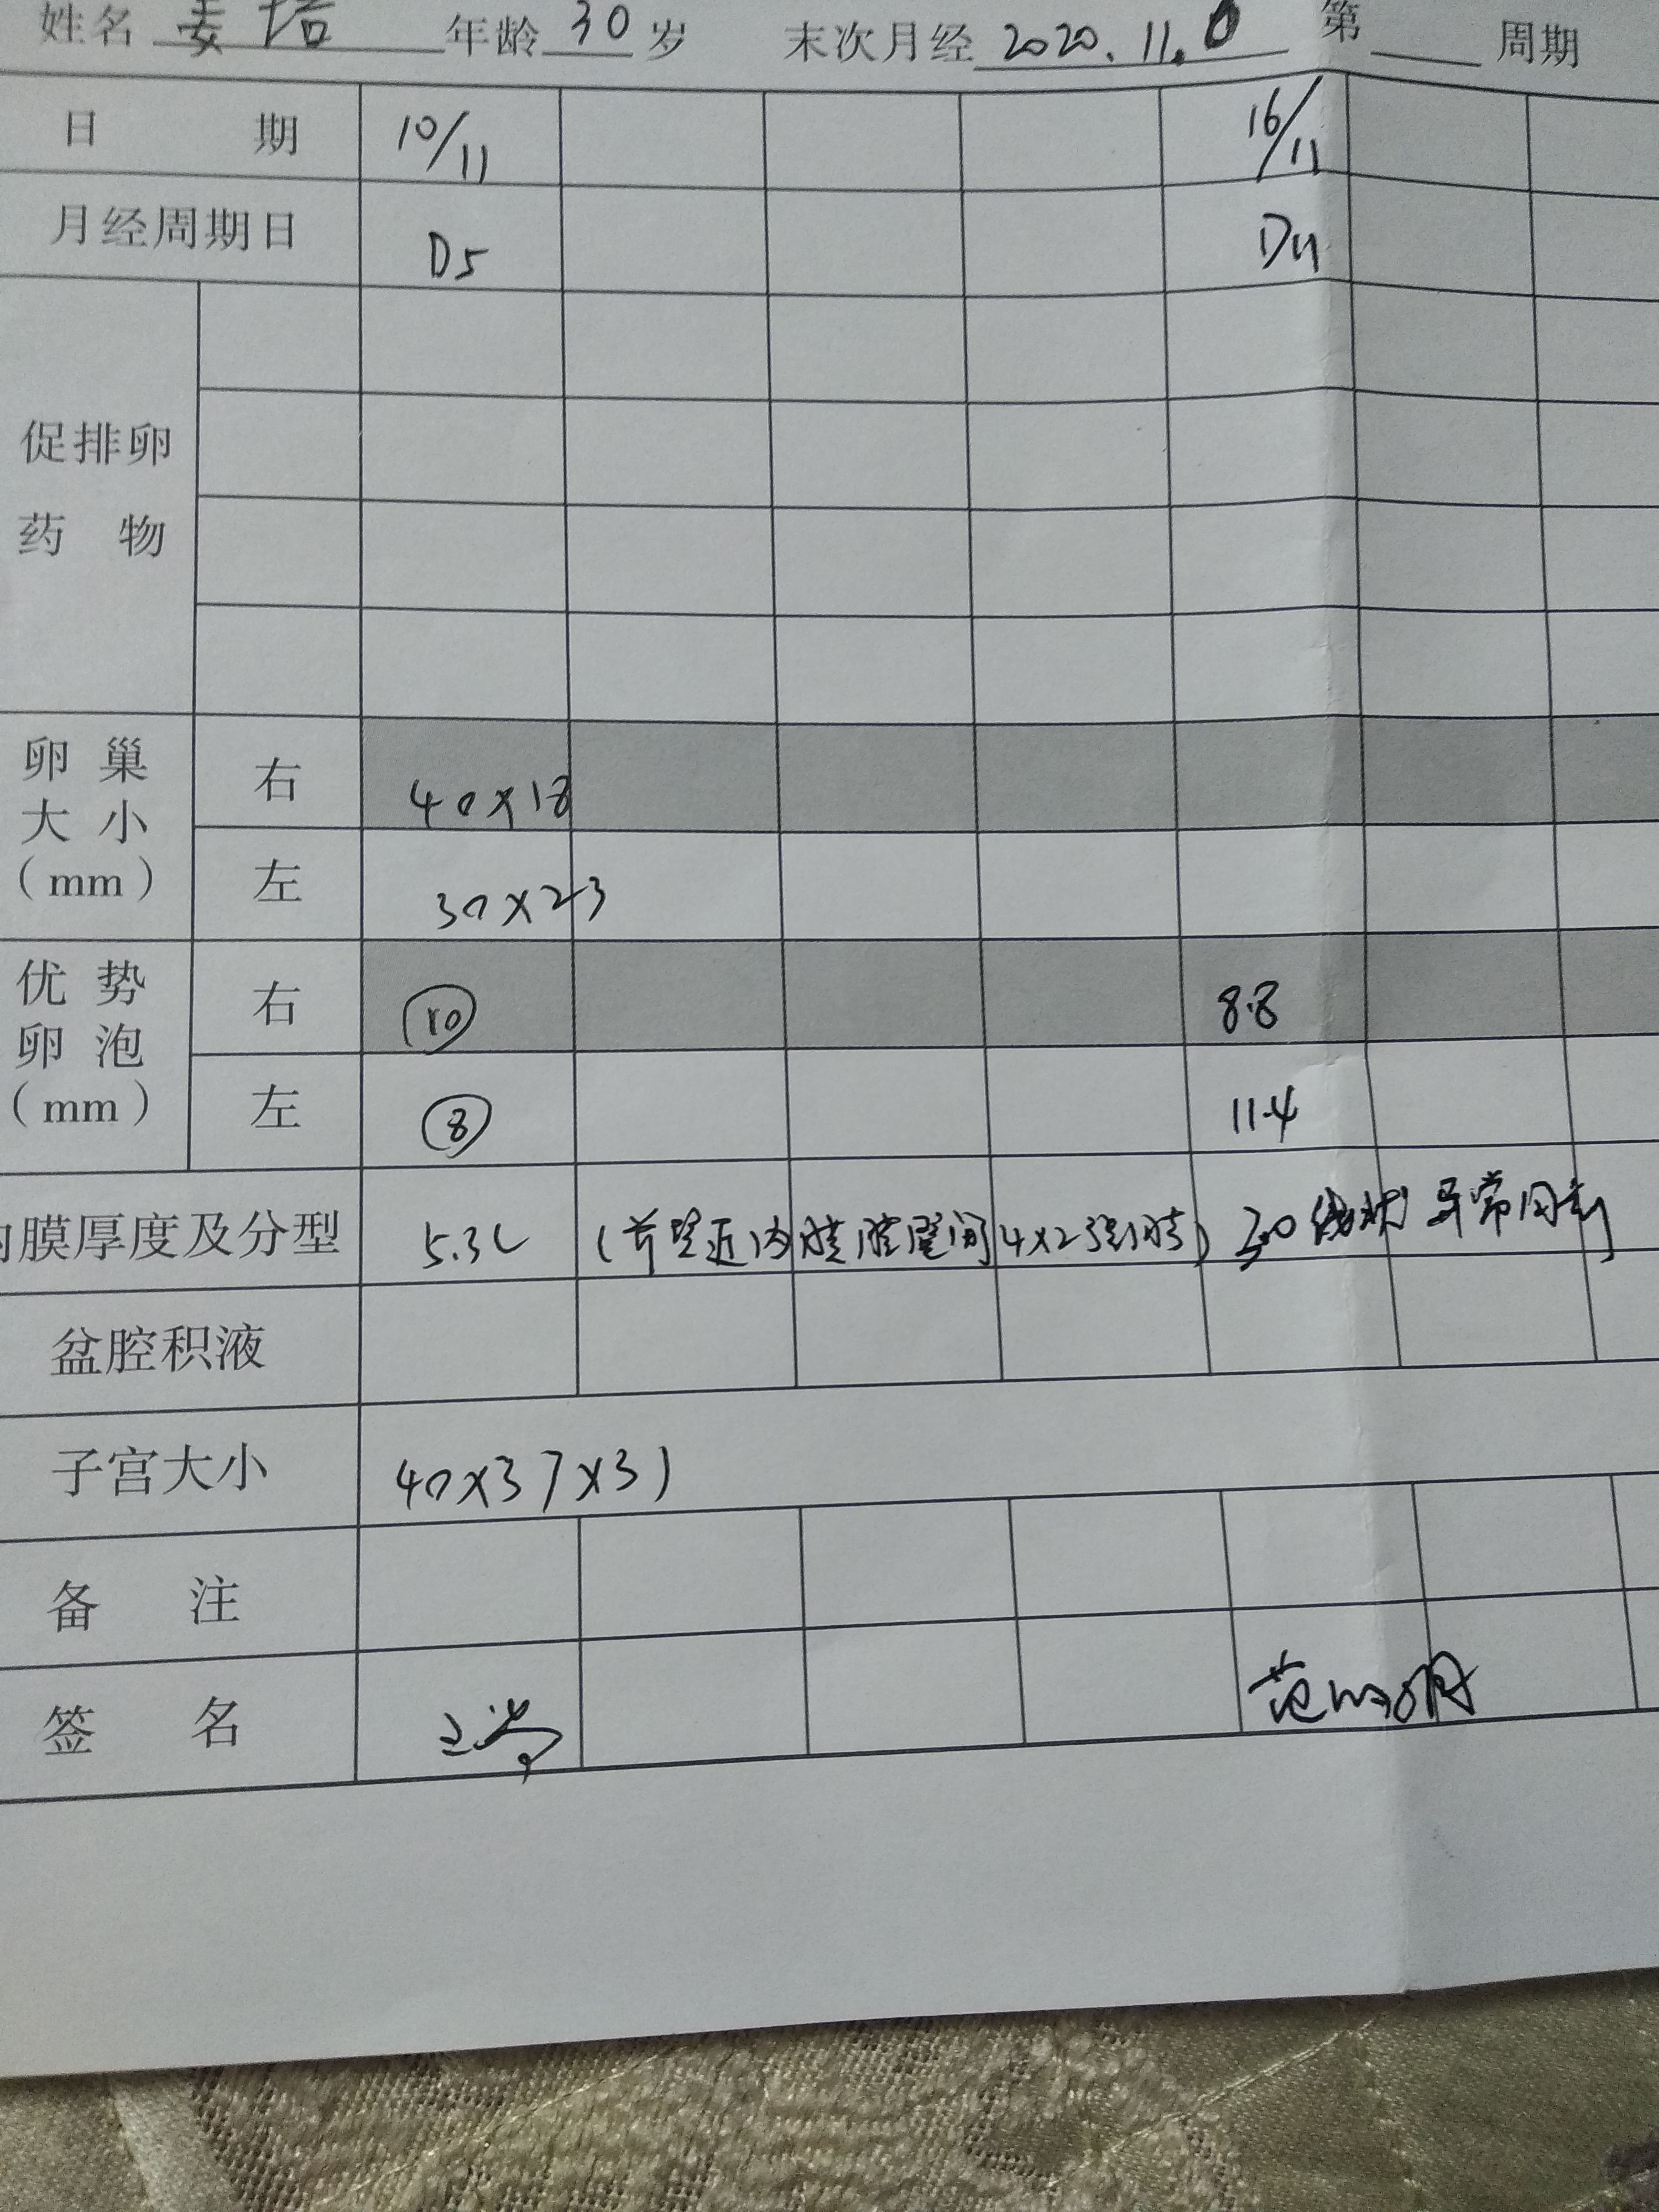 姓名 姜培 年龄 30 岁 末次月经 2020.11.6 第 周期
日 期 10/11 16/11
月经周期日 D5 D11
促排卵
药 物
卵巢
大小
(mm)
右 40×18
左 30×23
优势
卵泡
(mm)
右 ⑩ 8.8
左 ⑧ 11.4
内膜厚度及分型 5.3C (前壁近内膜肌壁间4×2强回声) 3.0 线状 异常同前
盆腔积液
子宫大小 40×37×31
备 注
签 名 范